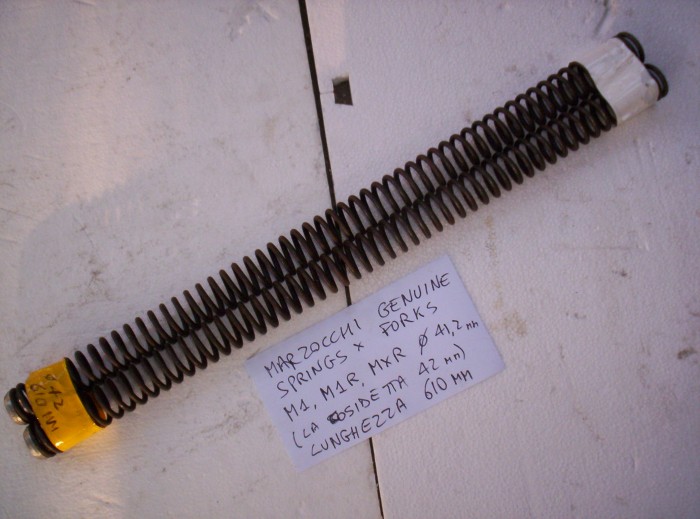 MARZOCCHI GENUINE
SPRINGS X FORKS
M1, M1R, MXR Ø 41,2 mm
(LA COSIDETTA 42 mm)
LUNGHEZZA 610 MM
Ø 42
610 MM